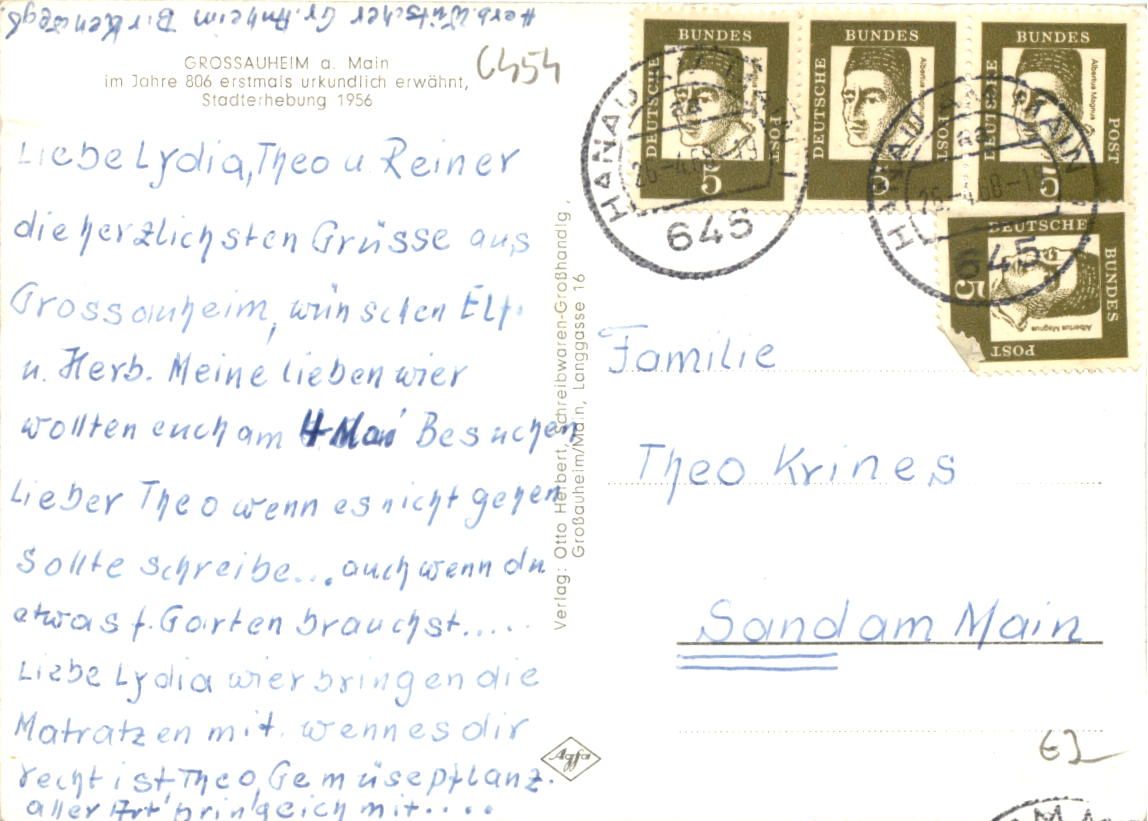 Herb. Wütscher Gr. Auheim Birkenweg 6
GROSSAUHEIM a. Main
im Jahre 806 erstmals urkundlich erwähnt,
Stadterhebung 1956
6454
Liebe Lydia, Theo u. Reiner
die herzlichsten Grüsse aus
Grossauheim, wünschen Elf.
u. Herb. Meine lieben wier
wollten euch am 4 Mai Besuchen
Lieber Theo wenn es nicht gehen
sollte schreibe... auch wenn du
etwas f. Garten brauchst.....
Liebe Lydia wier bringen die
Matratzen mit. wenn es dir
recht ist, Theo, Gemüsepflanz.
aller Art bring eich mit....
Verlag: Otto Herbert, Schreibwaren-Großhandlg.,
Großauheim/Main, Langgasse 16
Agfa
DEUTSCHE BUNDES POST
5
DEUTSCHE BUNDES POST
Albertus Magnus
5
DEUTSCHE BUNDES POST
Albertus Magnus
5
DEUTSCHE BUNDES POST
Albertus Magnus
5
HANAU AM MAIN 1
aa
26.-4.68-19
645
HANAU AM MAIN 1
aa
26.-4.68-19
645
Familie
Theo Krines
Sand am Main
62